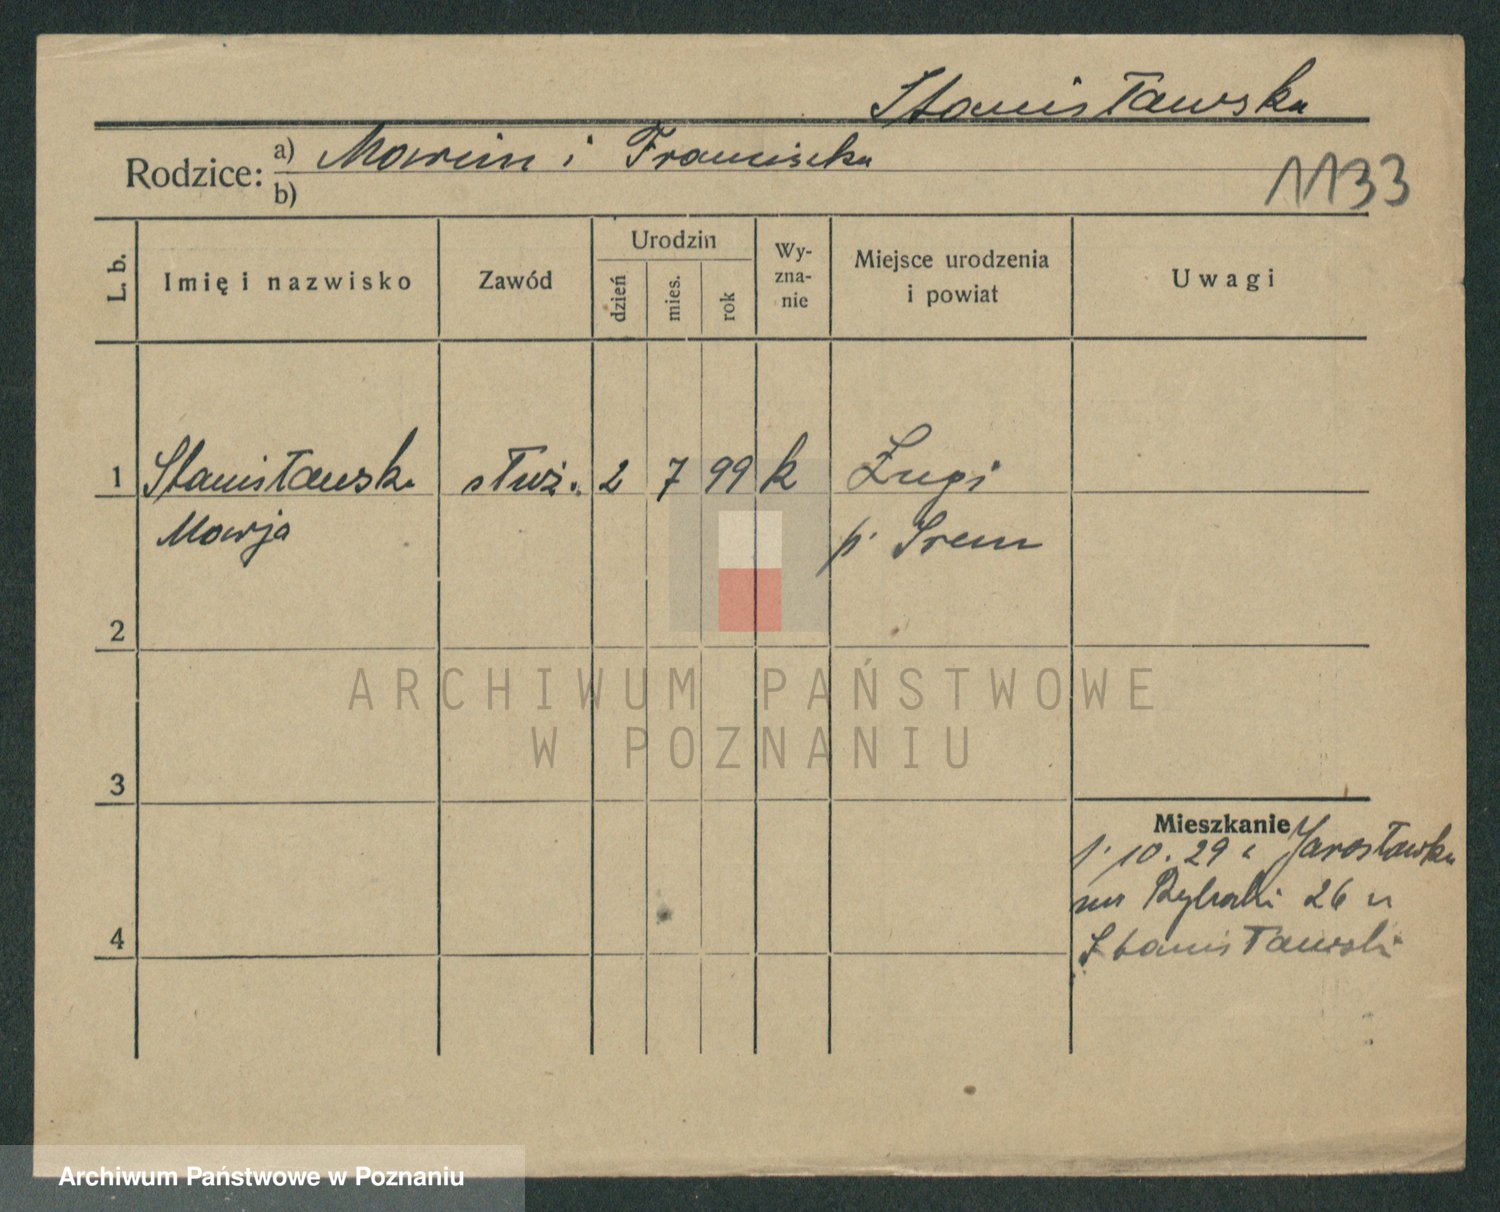 Stanisławska
Rodzice: a) Marcin i Franciszka
b)
1133
L. b.
Imię i nazwisko
Zawód
Urodzin
dzień
mies.
rok
Wy-
zna-
nie
Miejsce urodzenia
i powiat
Uwagi
1 Stanisławska służ. 2 7 99 k
Marja
p. Śrem
2
3
4
Mieszkanie
10. 29 Jarosławka
Rybaki 26 u
Stanisławski
ARCHIWUM PAŃSTWOWE
W POZNANIU
Archiwum Państwowe w Poznaniu